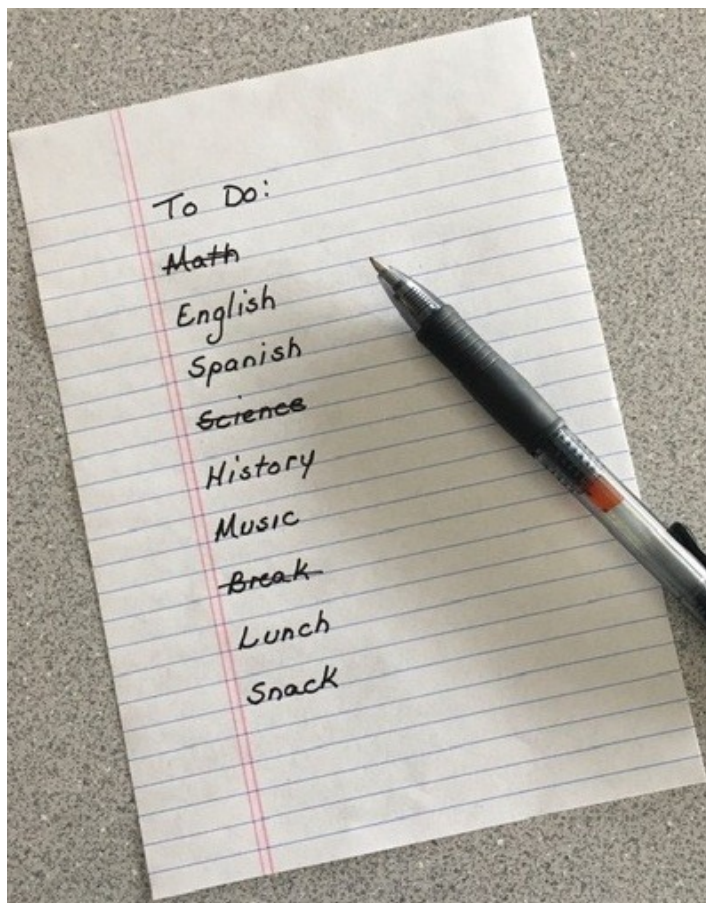 To Do:
Math
English
Spanish
Science
History
Music
Break
Lunch
Snack